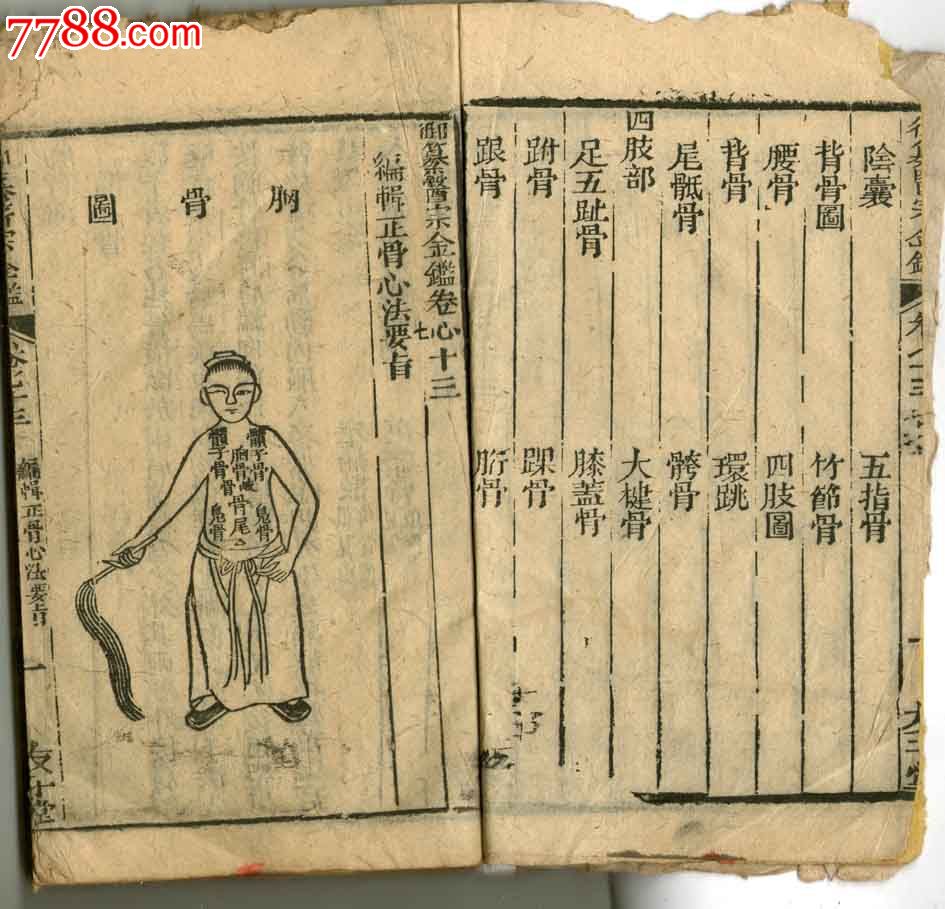 7788.com
陰囊
五指骨
背骨圖
竹節骨
腰骨
四肢圖
背骨
環跳
尾骶骨
骻骨
四肢部
大楗骨
足五趾骨
膝蓋骨
跗骨
踝骨
跟骨
胻骨
御纂醫宗金鑑卷七十三
編輯正骨心法要旨
胸骨圖
髃子骨
髃子骨
胸骨
骨
鳬骨
骨尾
鳬骨
編輯正骨心法要旨
一
友于堂